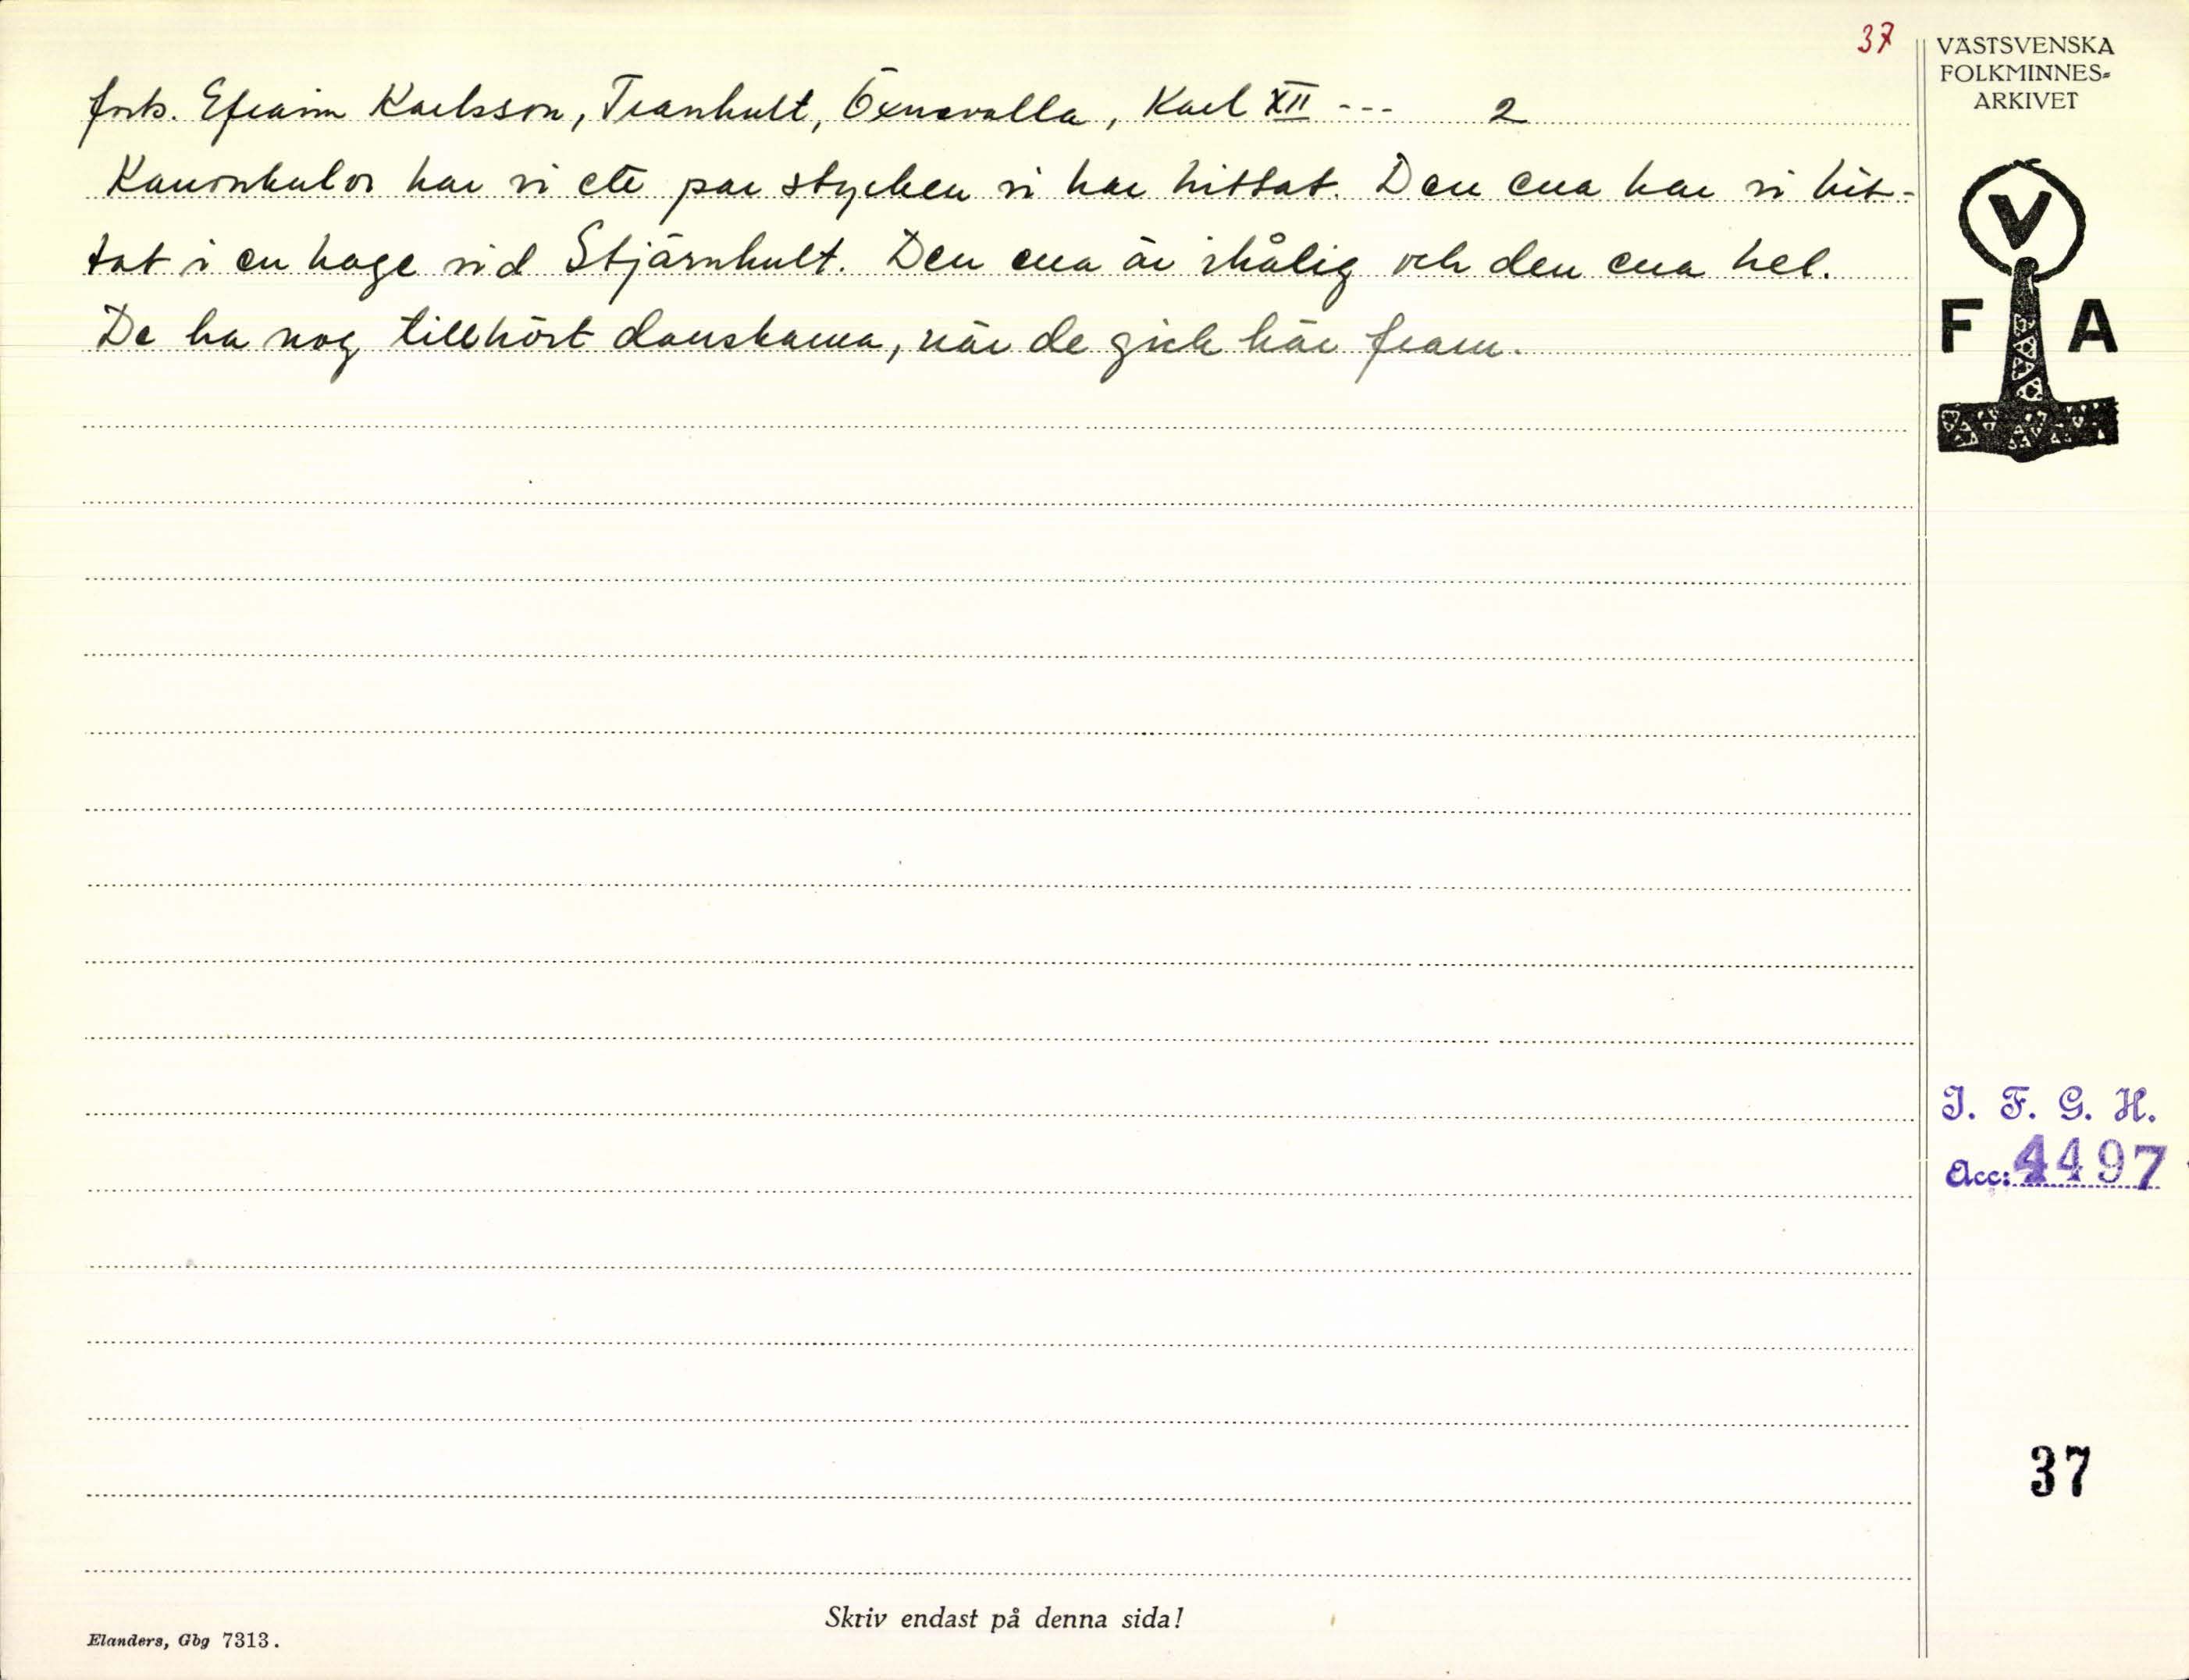 37
forts. Efraim Karlsson, Tranhult, Öxnevalla, Karl XII --- 2
Kanonkulor har vi ett par stycken vi har hittat. Den ena har vi hit-
tat i en hage vid Stjärnhult. Den ena är ihålig och den ena hel.
De ha nog tillhört danskarna, när de gick här fram.
VÄSTSVENSKA
FOLKMINNES-
ARKIVET
V
F A
I. F. G. H.
Acc: 4497
37
Skriv endast på denna sida!
Elanders, Gbg 7313.